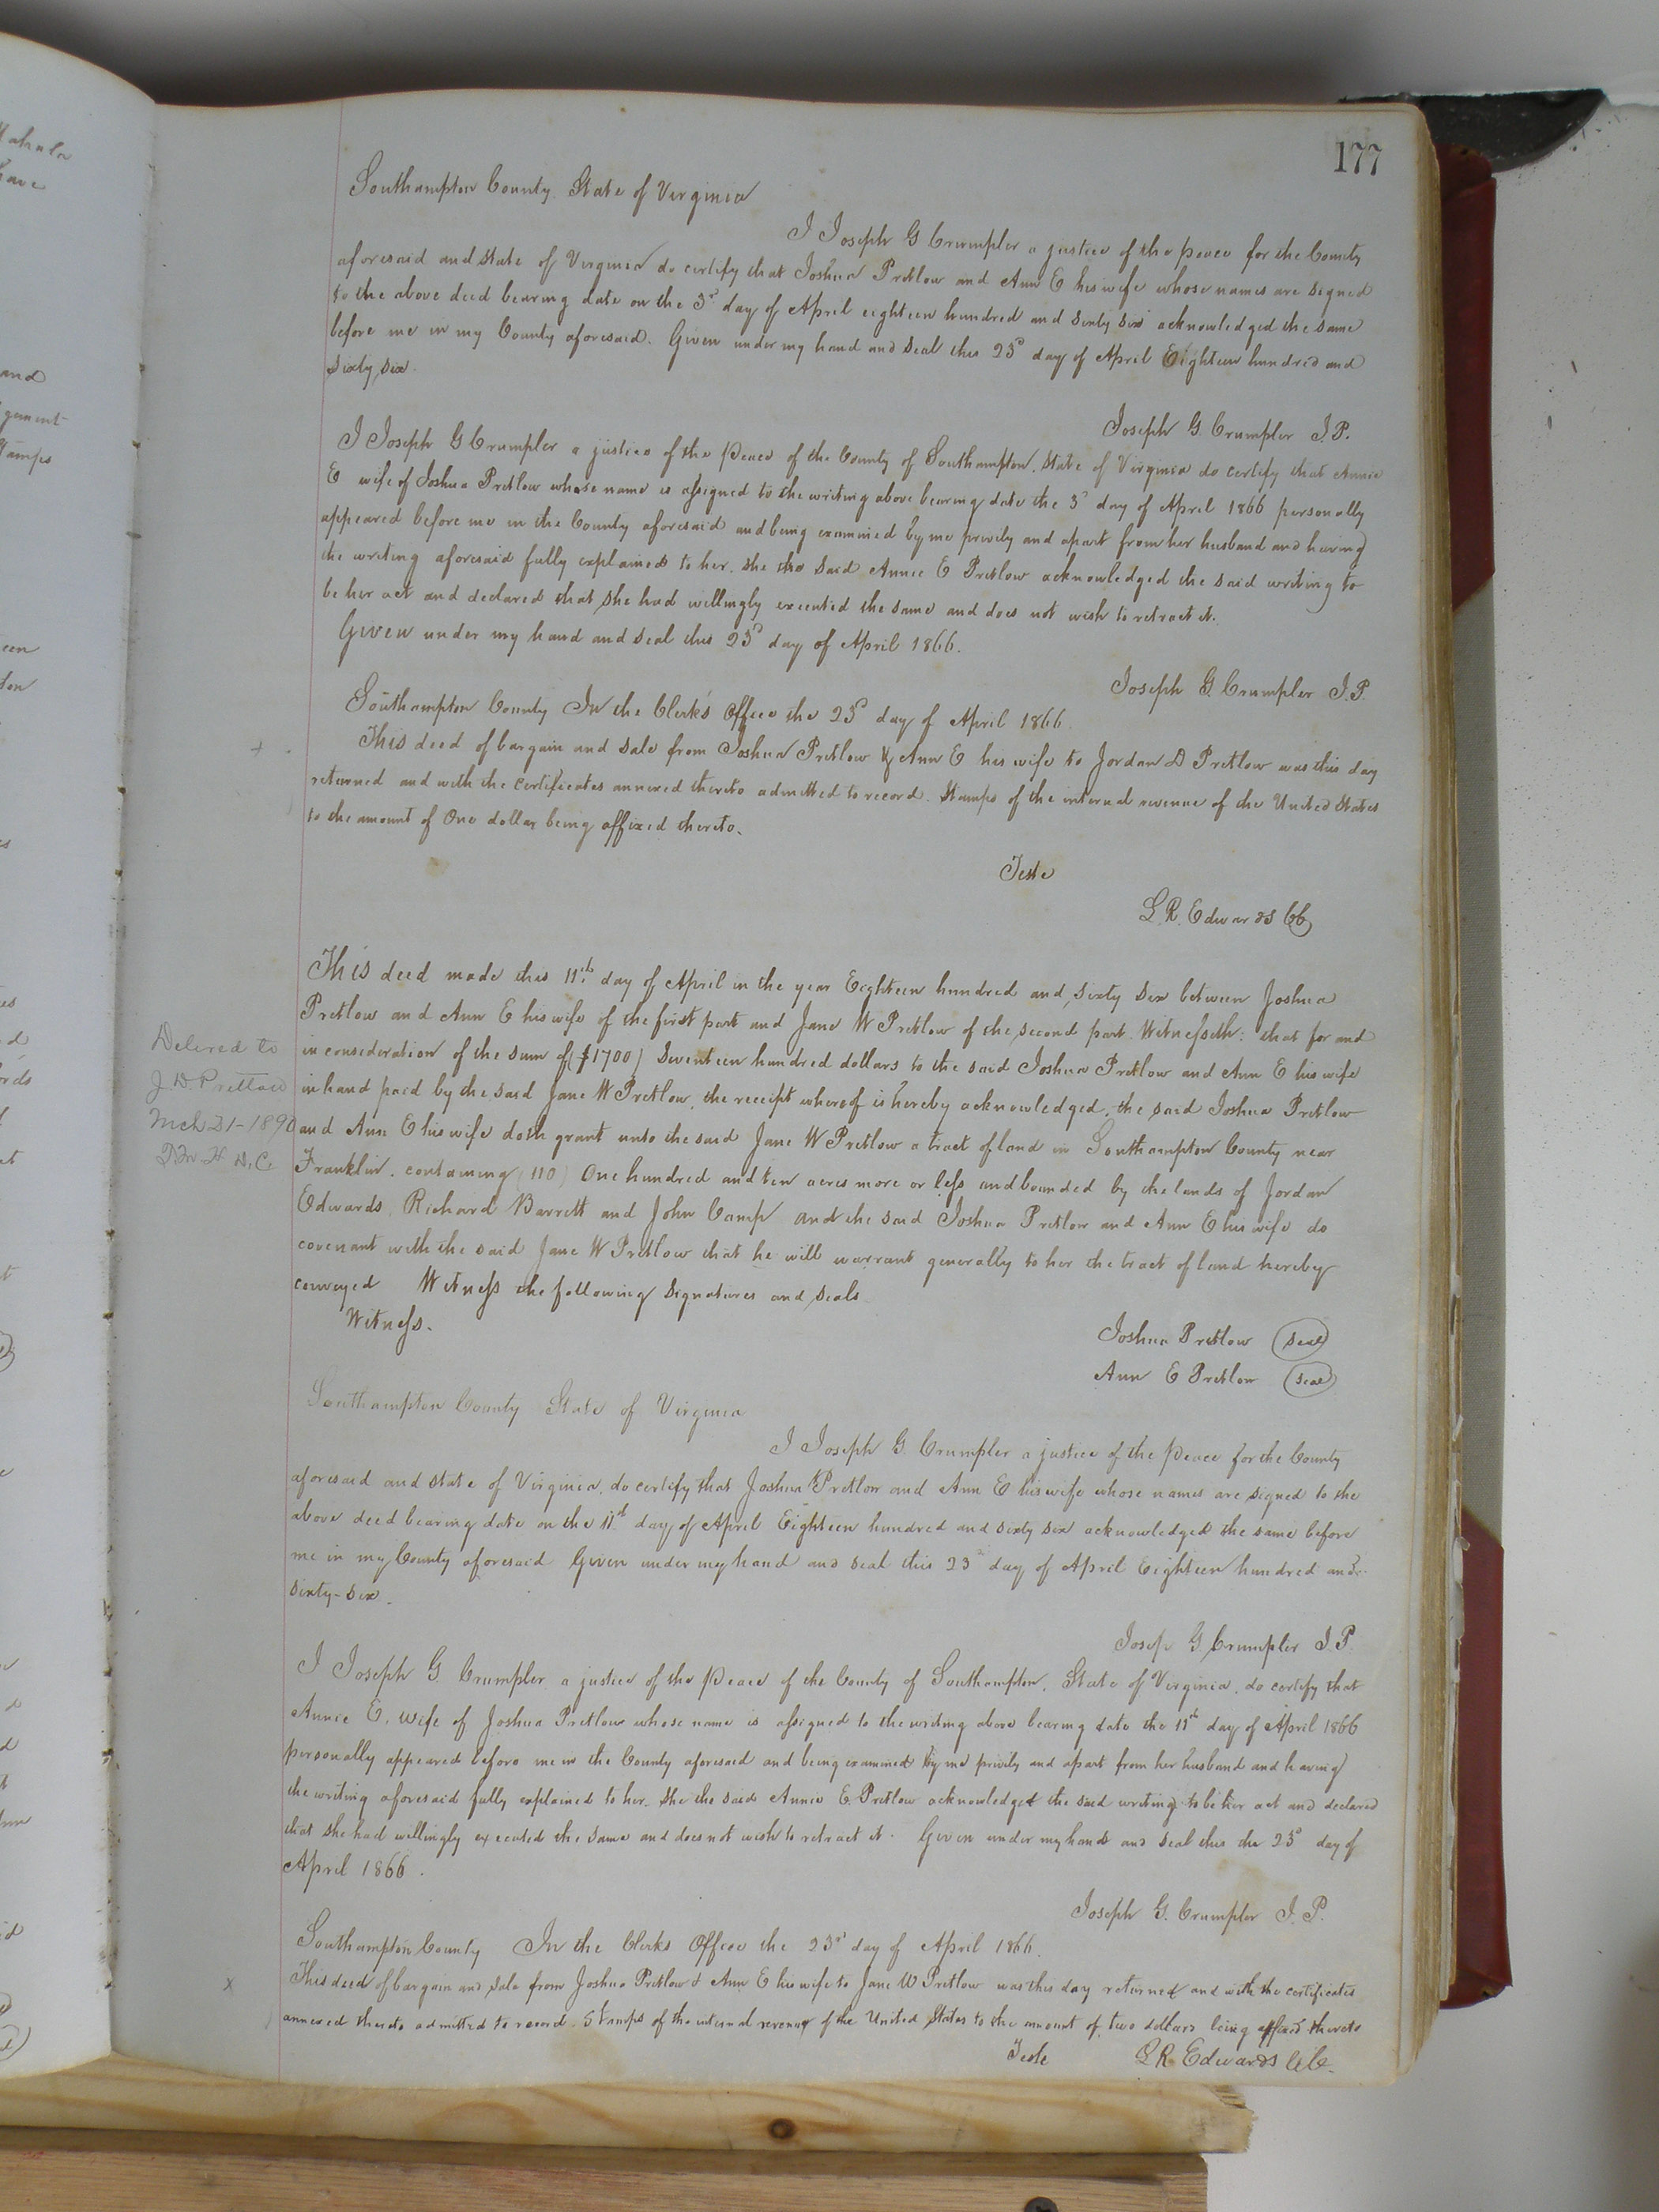 177
Southampton County State of Virginia
I Joseph G Crumpler a justice of the peace for the County
aforesaid and State of Virginia do certify that Joshua Pretlow and Ann E his wife whose names are signed
to the above deed bearing date on the 3d day of April eighteen hundred and sixty six acknowledged the same
before me in my County aforesaid. Given under my hand and seal this 23d day of April Eighteen hundred and
sixty six.
Joseph G. Crumpler J.P.
I Joseph G Crumpler a justice of the Peace of the County of Southampton, State of Virginia do certify that Annie
E wife of Joshua Pretlow whose name is assigned to the writing above bearing date the 3d day of April 1866 personally
appeared before me in the County aforesaid and being examined by me privily and apart from her husband and having
the writing aforesaid fully explained to her. She the said Annie E Pretlow acknowledged the said writing to
be her act and declared that she had willingly executed the same and does not wish to retract it.
Given under my hand and seal this 23d day of April 1866.
Joseph G. Crumpler J.P.
Southampton County In the Clerk's Office the 23d day of April 1866.
This deed of bargain and sale from Joshua Pretlow & Ann E his wife to Jordan D Pretlow was this day
returned and with the certificates annexed thereto admitted to record. Stamps of the internal revenue of the United States
to the amount of One dollar being affixed thereto.
Teste
L. R. Edwards CC
This deed made this 11th day of April in the year Eighteen hundred and sixty six between Joshua
Pretlow and Ann E his wife of the first part and Jane W Pretlow of the second part. Witnesseth: that for and
in consideration of the sum of ($1700) Seventeen hundred dollars to the said Joshua Pretlow and Ann E his wife
in hand paid by the said Jane W Pretlow, the receipt whereof is hereby acknowledged, the said Joshua Pretlow
and Ann E his wife doth grant unto the said Jane W Pretlow a tract of land in Southampton County near
Franklin. containing (110) One hundred and ten acres more or less and bounded by the lands of Jordan
Edwards, Richard Barrett and John Camp and the said Joshua Pretlow and Ann E his wife do
covenant with the said Jane W Pretlow that he will warrant generally to her the tract of land hereby
conveyed Witness the following signatures and seals
Delivered to
J. D. Pretlow
Mch 21-1890
D. C.
Witness.
Joshua Pretlow (seal)
Ann E Pretlow (seal)
Southampton County State of Virginia
I Joseph G. Crumpler a justice of the Peace for the County
aforesaid and state of Virginia, do certify that Joshua Pretlow and Ann E his wife whose names are signed to the
above deed bearing date on the 11th day of April Eighteen hundred and sixty six acknowledged the same before
me in my County aforesaid Given under my hand and seal this 23d day of April Eighteen hundred and
sixty-six.
Josep G. Crumpler J.P.
I Joseph G. Crumpler a justice of the Peace of the County of Southampton, State of Virginia, do certify that
Annie E. wife of Joshua Pretlow whose name is assigned to the writing above bearing date the 11th day of April 1866
personally appeared before me in the County aforesaid and being examined by me privily and apart from her husband and having
the writing aforesaid fully explained to her. She the said Annie E. Pretlow acknowledged the said writing to be her act and declared
that she had willingly executed the same and does not wish to retract it. Given under my hand and seal this the 23d day of
April 1866.
Joseph G. Crumpler J.P.
Southampton County In the Clerks Office the 23rd day of April 1866.
x This deed of bargain and sale from Joshua Pretlow & Ann E his wife to Jane W Pretlow was this day returned and with the certificates
annexed thereto admitted to record. Stamps of the internal revenue of the United States to the amount of two dollars being affixed thereto
Teste L R Edwards CC